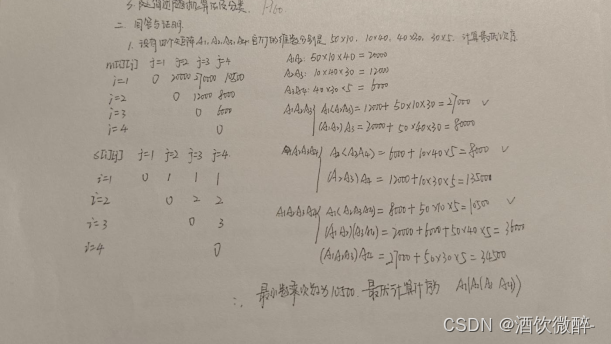 二 问答与证明
1. 设有四个矩阵A₁, A₂, A₃, A₄, 它们的维数分别是 50×10, 10×40, 40×30, 30×5.
m[i][j] j=1 j=2 j=3 j=4
i=1 0 20000 27000 10500
i=2 0 12000 8000
i=3 0 6000
i=4 0
A₁A₂: 50×10×40=20000
A₂A₃: 10×40×30=12000
A₃A₄: 40×30×5=6000
A₁A₂A₃ A₁(A₂A₃)=12000+50×10×30=27000 ✓
(A₁A₂)A₃=20000+50×40×30=80000
S[i][j] j=1 j=2 j=3 j=4
i=1 0 1 1 1
i=2 0 2 2
i=3 0 3
i=4 0
A₂A₃A₄ A₂(A₃A₄)=6000+10×40×5=8000 ✓
(A₂A₃)A₄=12000+10×30×5=13500
A₁A₂A₃A₄ A₁(A₂A₃A₄)=8000+50×10×5=10500 ✓
(A₁A₂)(A₃A₄)=20000+6000+50×40×5=36000
(A₁A₂A₃)A₄=27000+50×30×5=34500
∴ 最小数乘次数为10500 最优计算次序为 A₁(A₂(A₃A₄))
CSDN @酒饮微醉-